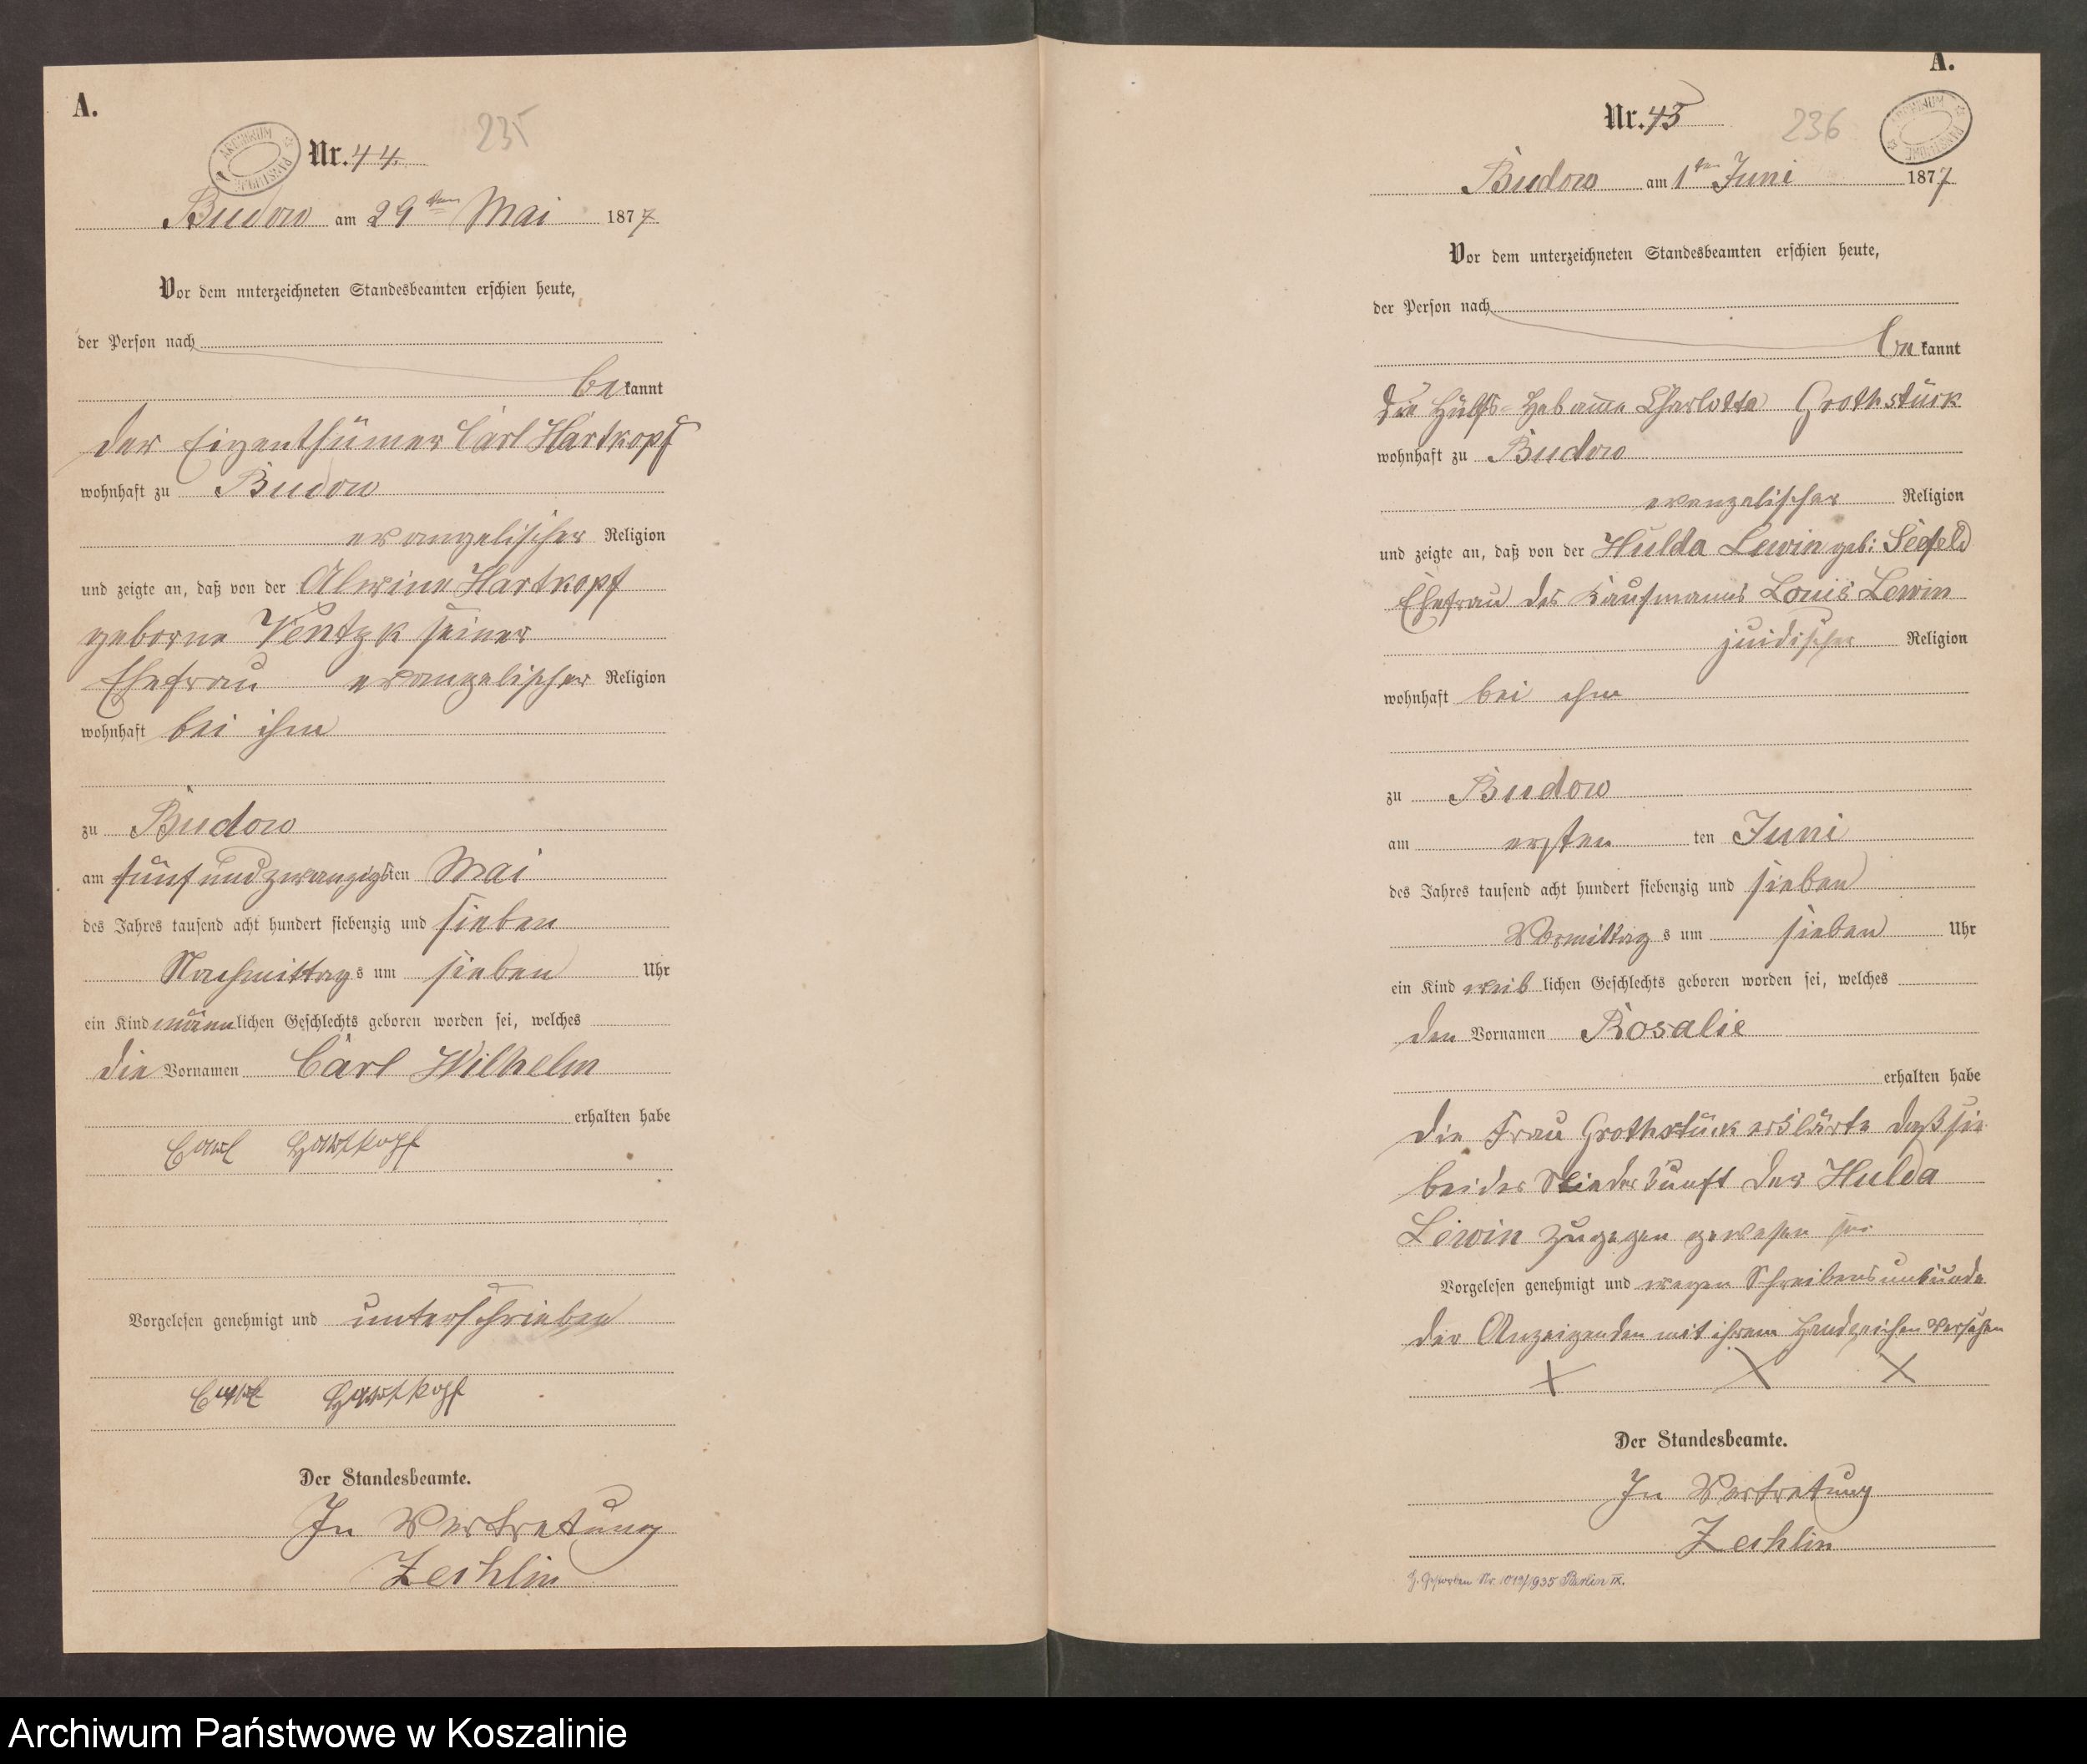 A.
ARCHIWUM PAŃSTWOWE
Nr. 44.
235
Budow am 29ten Mai 1877.
Vor dem unterzeichneten Standesbeamten erschien heute,
der Person nach
bekannt
der Eigenthümer Carl Hartkopf
wohnhaft zu Budow
evangelischer Religion
und zeigte an, daß von der Alwine Hartkopf
geborne Ventzk seiner
Ehefrau evangelischer Religion
wohnhaft bei ihm
zu Budow
am fünf und zwanzigsten Mai
des Jahres tausend acht hundert siebenzig und sieben
Nachmittags um sieben Uhr
ein Kind männlichen Geschlechts geboren worden sei, welches
die Vornamen Carl Wilhelm
erhalten habe
Carl Hartkopf
Vorgelesen genehmigt und unterschrieben
Carl Hartkopf
Der Standesbeamte.
In Vertretung
Zechlin
A.
Nr. 45
236
ARCHIWUM PAŃSTWOWE
Budow am 1ten Juni 1877.
Vor dem unterzeichneten Standesbeamten erschien heute,
der Person nach
bekannt
die Hülfs-Hebamme Charlotte Grothstück
wohnhaft zu Budow
evangelischer Religion
und zeigte an, daß von der Hulda Lewin geb: Seefeld
Ehefrau des Kaufmanns Louis Lewin
juidischer Religion
wohnhaft bei ihm
zu Budow
am ersten ten Juni
des Jahres tausend acht hundert siebenzig und sieben
Vormittags um sieben Uhr
ein Kind weiblichen Geschlechts geboren worden sei, welches
den Vornamen Rosalie
erhalten habe
Die Frau Grothstück erklärte daß sie
bei der Niederkunft der Hulda
Lewin zugegen gewesen sei
Vorgelesen genehmigt und wegen Schreibensunkunde
der Anzeigenden mit ihrem Handzeichen versehen
X X X
Der Standesbeamte.
In Vertretung
Zechlin
G. Gestorben Nr. 1019/1935 Berlin IX.
Archiwum Państwowe w Koszalinie